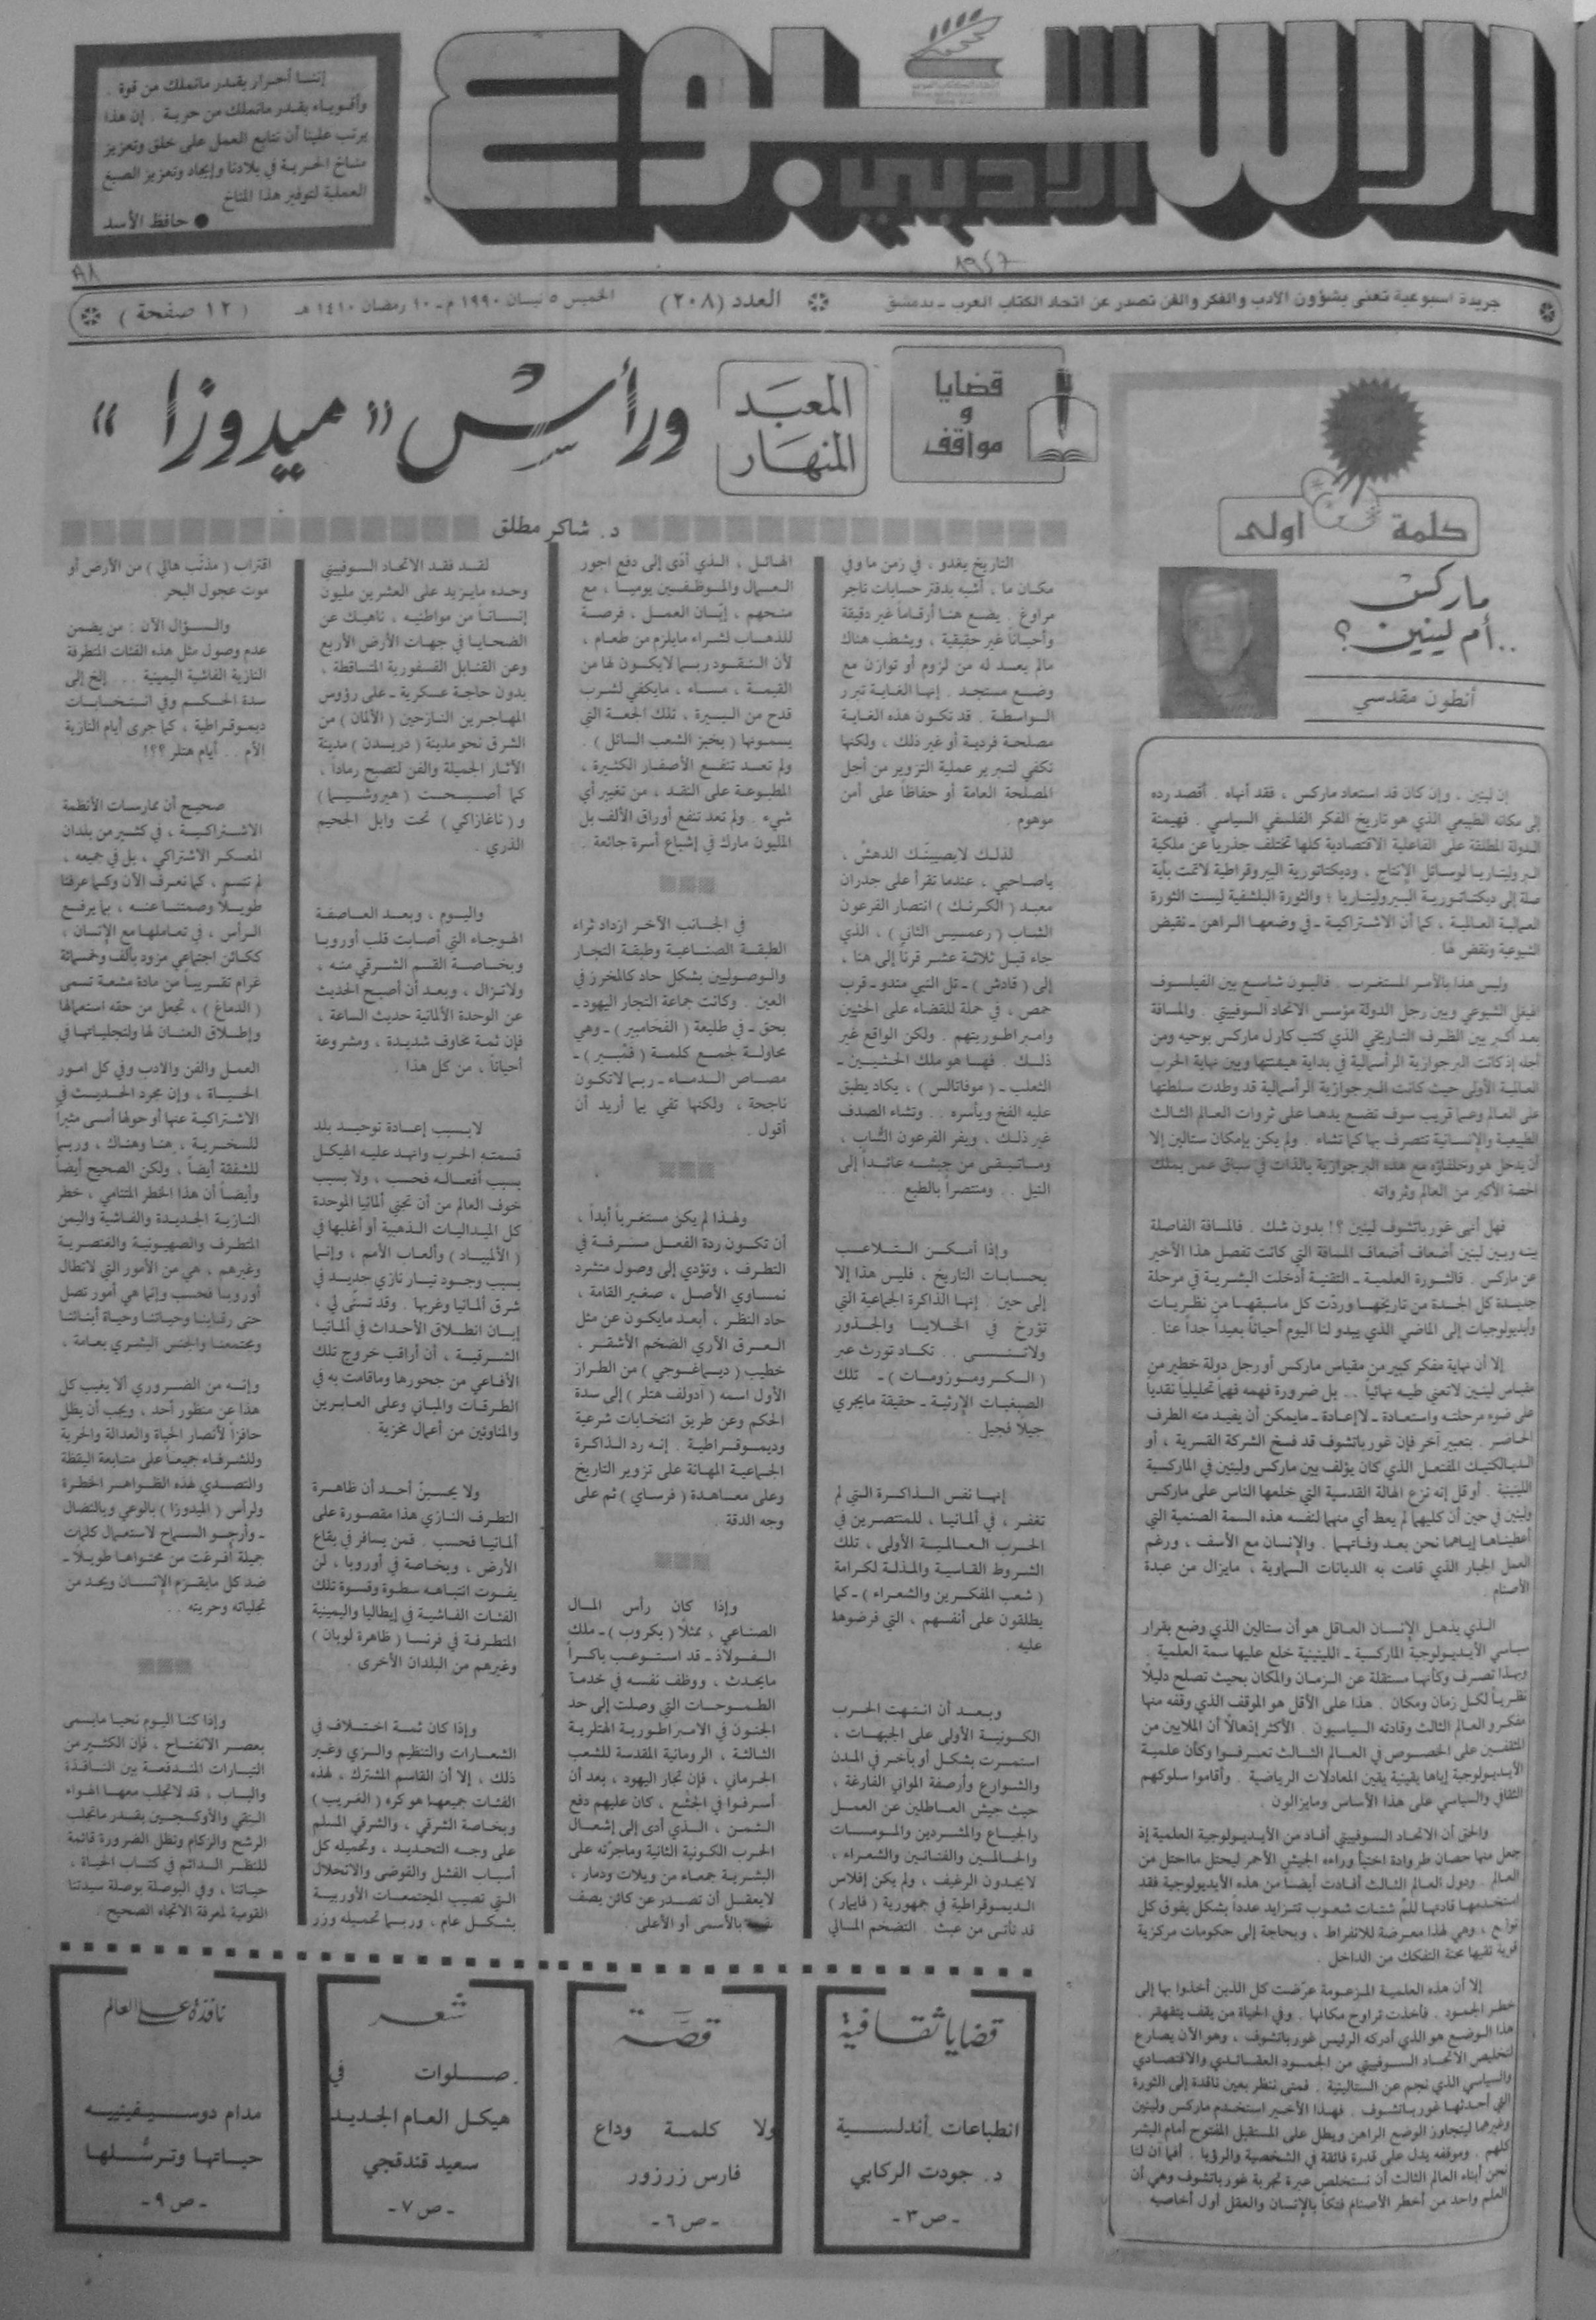 الأسبوع الأدبي
إننا أحرار بقدر مانملك من قوة .
وأقوياء بقدر مانملك من حرية . إن هذا
يرتب علينا أن نتابع العمل على خلق وتعزيز
مناخ الحرية في بلادنا وإيجاد وتعزيز الصيغ
العملية لتوفير هذا المناخ
● حافظ الأسد
جريدة اسبوعية تعنى بشؤون الأدب والفكر والفن تصدر عن اتحاد الكتاب العرب ـ بدمشق
العدد (٢٠٨)
الخميس ٥ نيسان ١٩٩٠ م ـ ١٠ رمضان ١٤١٠ هـ
( ١٢ صفحة )
كلمة اولى
ماركس
.. أم لينين ؟
أنطون مقدسي
إن لينين ، وإن كان قد استعاد ماركس ، فقد أنهاه . أقصد رده
إلى مكانه الطبيعي الذي هو تاريخ الفكر الفلسفي السياسي . فهيمنة
الدولة المطلقة على الفاعلية الاقتصادية كلها تختلف جذرياً عن ملكية
البروليتاريا لوسائل الإنتاج ، وديكتاتورية البيروقراطية لاتمت بأية
صلة إلى ديكتاتورية البروليتاريا ؛ والثورة البلشفية ليست الثورة
العمالية العالمية ، كما أن الاشتراكية ـ في وضعها الراهن ـ نقيض
الشيوعية ونقض لها .
وليس هذا بالأمر المستغرب . فالبون شاسع بين الفيلسوف
الهيغلي الشيوعي وبين رجل الدولة مؤسس الاتحاد السوفييتي . والمسافة
بعد أكبر بين الظرف التاريخي الذي كتب كارل ماركس بوحيه ومن
أجله إذ كانت البرجوازية الرأسمالية في بداية هيمنتها وبين نهاية الحرب
العالمية الأولى حيث كانت البرجوازية الرأسمالية قد وطدت سلطتها
على العالم وعما قريب سوف تضع يدها على ثروات العالم الثالث
الطبيعية والإنسانية تتصرف بها كما تشاء . ولم يكن بإمكان ستالين إلا
أن يدخل هو وخلفاؤه مع هذه البرجوازية بالذات في سباق عمن يملك
الحصة الأكبر من العالم وثرواته .
فهل أنهى غورباتشوف لينين ؟! بدون شك . فالمسافة الفاصلة
بينه وبين لينين أضعاف أضعاف المسافة التي كانت تفصل هذا الأخير
عن ماركس . فالثورة العلمية ـ التقنية أدخلت البشرية في مرحلة
جديدة كل الجدة من تاريخها وردّت كل ماسبقها من نظريات
وأيديولوجيات إلى الماضي الذي يبدو لنا اليوم أحياناً بعيداً جداً عنا .
إلا أن نهاية مفكر كبير من مقياس ماركس أو رجل دولة خطير من
مقياس لينين لاتعني طيه نهائياً .. بل ضرورة فهمه فهماً تحليلياً نقدياً
على ضوء مرحلته واستعادة ـ لاإعادة ـ مايمكن أن يفيد منه الظرف
الحاضر . بتعبير آخر فإن غورباتشوف قد فسخ الشركة القسرية ، أو
الديالكتيك المفتعل الذي كان يؤلف بين ماركس ولينين في الماركسية
اللينينية . أو قل إنه نزع الهالة القدسية التي خلعها الناس على ماركس
ولينين في حين أن كليهما لم يعط أي منهما لنفسه هذه السمة الصنمية التي
أعطيناها إياهما نحن بعد وفاتهما . والإنسان مع الأسف ، ورغم
العمل الجبار الذي قامت به الديانات السماوية ، مايزال من عبدة
الأصنام .
الذي يذهل الإنسان العاقل هو أن ستالين الذي وضع بقرار
سياسي الأيديولوجية الماركسية ـ اللينينية خلع عليها سمة العلمية .
وبهذا تصرف وكأنها مستقلة عن الزمان والمكان بحيث تصلح دليلاً
نظرياً لكل زمان ومكان . هذا على الأقل هو الموقف الذي وقفه منها
مفكرو العالم الثالث وقادته السياسيون . الأكثر إذهالاً أن الملايين من
المثقفين على الخصوص في العالم الثالث تعرفوا وكأن علمية
الأيديولوجية إياها يقينية يقين المعادلات الرياضية . وأقاموا سلوكهم
الثقافي والسياسي على هذا الأساس ومايزالون .
والحق أن الاتحاد السوفييتي أفاد من الأيديولوجية العلمية إذ
جعل منها حصان طروادة اختبأ وراءه الجيش الأحمر ليحتل مااحتل من
العالم . ودول العالم الثالث أفادت أيضاً من هذه الأيديولوجية فقد
استخدمها قادتها للمّ شتات شعوب تتزايد عدداً بشكل يفوق كل
توقع ، وهي لهذا معرضة للانفراط ، وبحاجة إلى حكومات مركزية
قوية تقيها محنة التفكك من الداخل .
إلا أن هذه العلمية المزعومة عرّضت كل الذين أخذوا بها إلى
خطر الجمود . فأخذت تراوح مكانها . وفي الحياة من يقف يتقهقر .
هذا الوضع هو الذي أدركه الرئيس غورباتشوف ، وهو الآن يصارع
لتخليص الاتحاد السوفييتي من الجمود العقائدي والاقتصادي
والسياسي الذي نجم عن الستالينية . فمتى ننظر بعين ناقدة إلى الثورة
التي أحدثها غورباتشوف . فهذا الأخير استخدم ماركس ولينين
وغيرهما ليتجاوز الوضع الراهن ويطل على المستقبل المفتوح أمام البشر
كلهم . وموقفه يدل على قدرة فائقة في الشخصية والرؤيا . أفما آن لنا
نحن أبناء العالم الثالث أن نستخلص عبرة تجربة غورباتشوف وهي أن
العلم واحد من أخطر الأصنام فتكاً بالإنسان والعقل أول أخاصيه .
قضايا
و
مواقف
المعبد
المنهار
ورأس « ميدوزا »
د. شاكر مطلق
التاريخ يغدو ، في زمن ما وفي
مكان ما ، أشبه بدفتر حسابات تاجر
مراوغ . يضع هنا أرقاماً غير دقيقة
وأحياناً غير حقيقية ، ويشطب هناك
مالم يعد له من لزوم أو توازن مع
وضع مستجد . إنها الغاية تبرر
الواسطة . قد تكون هذه الغاية
مصلحة فردية أو غير ذلك ، ولكنها
تكفي لتبرير عملية التزوير من أجل
المصلحة العامة أو حفاظاً على أمن
موهوم .
لذلك لايصيبنّك الدهش ،
ياصاحبي ، عندما تقرأ على جدران
معبد ( الكرنك ) انتصار الفرعون
الشاب ( رعمسيس الثاني ) ، الذي
جاء قبل ثلاثة عشر قرناً إلى هنا ،
إلى ( قادش ) ـ تل النبي مندو ـ قرب
حمص ، في حملة للقضاء على الحثيين
وامبراطوريتهم . ولكن الواقع غير
ذلك . فها هو ملك الحثيين ـ
الثعلب ـ ( موفاتالس ) ، يكاد يطبق
عليه الفخ ويأسره .. وتشاء الصدف
غير ذلك ، ويفر الفرعون الشاب ،
وماتبقى من جيشه عائداً إلى
النيل .. ومنتصراً بالطبع ..
وإذا أمكن التلاعب
بحسابات التاريخ ، فليس هذا إلا
إلى حين . إنها الذاكرة الجماعية التي
تؤرخ في الخلايا والجذور
ولاتنسى .. تكاد تورث عبر
( الكروموزومات ) ـ تلك
الصبغيات الإرثية ـ حقيقة مايجري
جيلاً فجيل .
إنها نفس الذاكرة التي لم
تغفر ، في ألمانيا ، للمنتصرين في
الحرب العالمية الأولى ، تلك
الشروط القاسية والمذلة لكرامة
( شعب المفكرين والشعراء ) ـ كما
يطلقون على أنفسهم ، التي فرضوها
عليه .
وبعد أن انتهت الحرب
الكونية الأولى على الجبهات ،
استمرت بشكل أو بآخر في المدن
والشوارع وأرصفة المواني الفارغة ،
حيث جيش العاطلين عن العمل
والجياع والمشردين والمومسات
والحالمين والفنانين والشعراء ،
لايجدون الرغيف ، ولم يكن إفلاس
الديموقراطية في جمهورية ( فايمار )
قد تأتى من عبث . التضخم المالي
الهائل ، الذي أدّى إلى دفع اجور
العمال والموظفين يومياً ، مع
منحهم ، إبّان العمل ، فرصة
للذهاب لشراء مايلزم من طعام ،
لأن النقود ربما لايكون لها من
القيمة ، مساء ، مايكفي لشرب
قدح من البيرة ، تلك الجعة التي
يسمونها ( بخبز الشعب السائل ) .
ولم تعد تنفع الأصفار الكثيرة ،
المطبوعة على النقد ، من تغيير أي
شيء . ولم تعد تنفع أوراق الألف بل
المليون مارك في إشباع أسرة جائعة .
في الجانب الآخر ازداد ثراء
الطبقة الصناعية وطبقة التجار
والوصوليين بشكل حاد كالمخرز في
العين . وكانت جماعة التجار اليهود ـ
بحق ـ في طليعة ( الفخامبير ) ـ وهي
محاولة لجمع كلمة ( فمْبير ) ـ
مصاص الدماء ـ ربما لاتكون
ناجحة ، ولكنها تفي بما أريد أن
أقول .
ولهذا لم يكن مستغرباً أبداً ،
أن تكون ردة الفعل مسرفة في
التطرف ، وتؤدي إلى وصول متشرد
نمساوي الأصل ، صغير القامة ،
حاد النظر ، أبعد مايكون عن مثل
العرق الآري الضخم الأشقر ،
خطيب ( ديماغوجي ) من الطراز
الأول اسمه ( آدولف هتلر ) إلى سدة
الحكم وعن طريق انتخابات شرعية
وديموقراطية . إنه رد الذاكرة
الجماعية المهانة على تزوير التاريخ
وعلى معاهدة ( فرساي ) ثم على
وجه الدقة .
وإذا كان رأس المال
الصناعي ، ممثلاً ( بكروب ) ـ ملك
الفولاذ ـ قد استوعب باكراً
مايحدث ، ووظف نفسه في خدمة
الطموحات التي وصلت إلى حد
الجنون في الامبراطورية الهتلرية
الثالثة ، الرومانية المقدسة للشعب
الجرماني ، فإن تجار اليهود ، بعد أن
أسرفوا في الجشع ، كان عليهم دفع
الثمن ، الذي أدى إلى إشعال
الحرب الكونية الثانية وماجرّته على
البشرية جمعاء من ويلات ودمار ،
لايعقل أن تصدر عن كائن يصف
نفسه بالأسمى أو الأعلى .
لقد فقد الاتحاد السوفييتي
وحده مايزيد على العشرين مليون
إنساناً من مواطنيه ، ناهيك عن
الضحايا في جهات الأرض الأربع
وعن القنابل الفسفورية المتساقطة ،
بدون حاجة عسكرية ـ على رؤوس
المهاجرين النازحين ( الألمان ) من
الشرق نحو مدينة ( دريسدن ) مدينة
الآثار الجميلة والفن لتصبح رماداً ،
كما أصبحت ( هيروشيما )
و ( ناغازاكي ) تحت وابل الجحيم
الذري .
واليوم ، وبعد العاصفة
الهوجاء التي أصابت قلب أوروبا
وبخاصة القسم الشرقي منه ،
ولاتزال ، وبعد أن أصبح الحديث
عن الوحدة الألمانية حديث الساعة ،
فإن ثمة مخاوف شديدة ، ومشروعة
أحياناً ، من كل هذا .
لابسبب إعادة توحيد بلد
قسمته الحرب وانهد عليه الهيكل
بسبب أفعاله فحسب ، ولا بسبب
خوف العالم من أن تجني ألمانيا الموحدة
كل الميداليات الذهبية أو أغلبها في
( الألمبياد ) وألعاب الأمم ، وإنما
بسبب وجود تيار نازي جديد في
شرق ألمانيا وغربها . وقد تسنّى لي ،
إبان انطلاق الأحداث في ألمانيا
الشرقية ، أن أراقب خروج تلك
الأفاعي من جحورها وماقامت به في
الطرقات والمباني وعلى العابرين
والمناوئين من أعمال مخزية .
ولا يحسبنّ أحد أن ظاهرة
التطرف النازي هذا مقصورة على
ألمانيا فحسب . فمن يسافر في بقاع
الأرض ، وبخاصة في أوروبا ، لن
يفوت انتباهه سطوة وقسوة تلك
الفئات الفاشية في إيطاليا واليمينية
المتطرفة في فرنسا ( ظاهرة لوبان )
وغيرهم من البلدان الأخرى .
وإذا كان ثمة اختلاف في
الشعارات والتنظيم والزي وغير
ذلك ، إلا أن القاسم المشترك ، لهذه
الفئات جميعها هو كره ( الغريب )
وبخاصة الشرقي ، والشرقي المسلم
على وجه التحديد ، وتحميله كل
أسباب الفشل والفوضى والانحلال
التي تصيب المجتمعات الأوربية
بشكل عام ، وربما تحميله وزر
اقتراب ( مذنّب هالي ) من الأرض أو
موت عجول البحر .
والسؤال الآن : من يضمن
عدم وصول مثل هذه الفئات المتطرفة
النازية الفاشية اليمينية ... إلخ إلى
سدة الحكم وفي انتخابات
ديموقراطية ، كما جرى أيام النازية
الأم .. أيام هتلر ؟؟!
صحيح أن ممارسات الأنظمة
الاشتراكية ، في كثير من بلدان
المعسكر الاشتراكي ، بل في جميعه ،
لم تتسم ، كما نعرف الآن وكما عرفنا
طويلاً وصمتنا عنه ، بما يرفع
الرأس ، في تعاملها مع الإنسان ،
ككائن اجتماعي مزود بألف وخمسمائة
غرام تقريباً من مادة مشعة تسمى
( الدماغ ) ، تجعل من حقه استعمالها
وإطلاق العنان لها ولتجلياتها في
العمل والفن والادب وفي كل امور
الحياة ، وإن مجرد الحديث في
الاشتراكية عنها أو حولها أمسى مثيراً
للسخرية ، هنا وهناك ، وربما
للشفقة أيضاً ، ولكن الصحيح أيضاً
وأيضاً أن هذا الخطر المتنامي ، خطر
النازية الجديدة والفاشية واليمن
المتطرف والصهيونية والعنصرية
وغيرهم ، هي من الأمور التي لاتطال
أوروبا فحسب وإنما هي أمور تصل
حتى رقابنا وحياتنا وحياة أبنائنا
ومجتمعنا والجنس البشري بعامة .
وإنه من الضروري ألا يغيب كل
هذا عن منظور أحد ، ويجب أن يظل
حافزاً لأنصار الحياة والعدالة والحرية
وللشرفاء جميعاً على متابعة اليقظة
والتصدي لهذه الظواهر الخطرة
ولرأس ( الميدوزا ) بالوعي وبالنضال
ـ وأرجو السماح لاستعمال كلمات
جميلة أفرغت من محتواها طويلاً ـ
ضد كل مايقزم الإنسان ويحد من
تجلياته وحريته ..
وإذا كنا اليوم نحيا مايسمى
بعصر الانفتاح ، فإن الكثير من
التيارات المندفعة بين النافذة
والباب ، قد لاتجلب معها الهواء
النقي والأوكسجين بقدر ماتجلب
الرشح والزكام وتظل الضرورة قائمة
للنظر الدائم في كتاب الحياة ،
حياتنا ، وفي البوصلة بوصلة سيدتنا
القومية لمعرفة الاتجاه الصحيح .
قضايا ثقافية
انطباعات أندلسية
د. جودت الركابي
ـ ص ٣ ـ
قصة
ولا كلمة وداع
فارس زرزور
ـ ص ٦ ـ
شعر
صلوات في
هيكل العام الجديد
سعيد قندقجي
ـ ص ٧ ـ
نافذة على العالم
مدام دوسيفينييه
حياتها وترسُّلها
ـ ص ٩ ـ